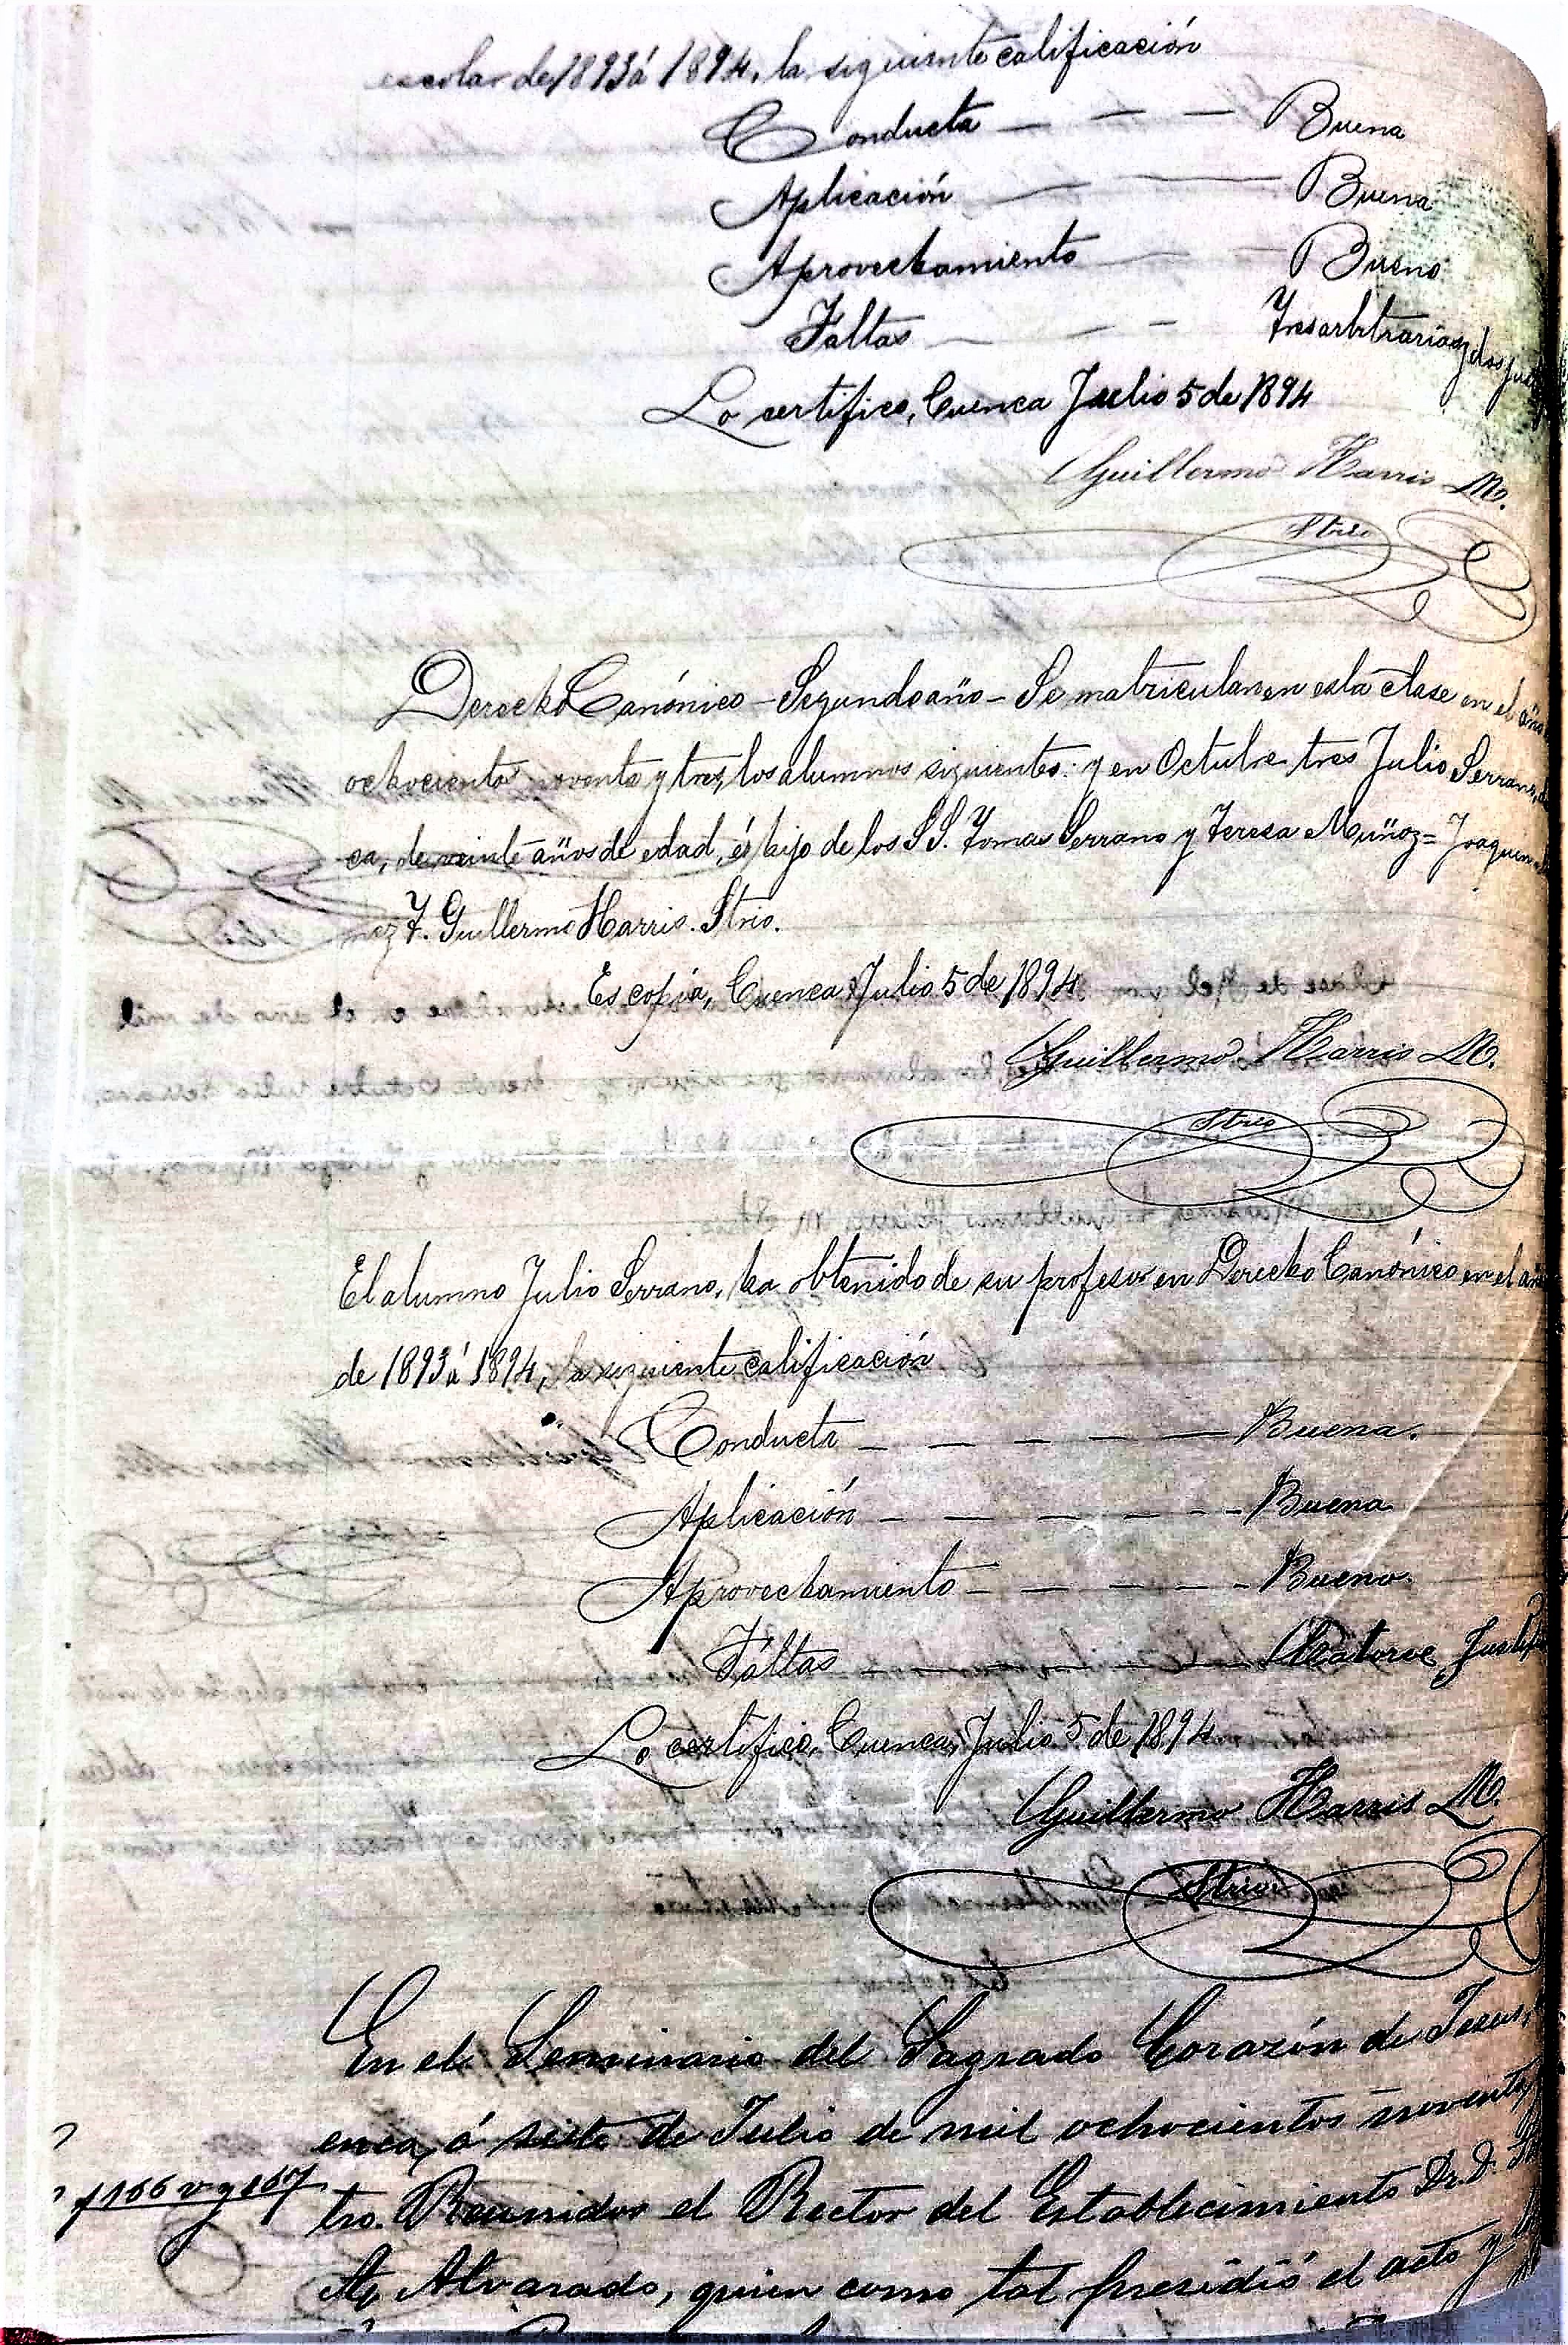 escolar de 1893 á 1894, la siguiente calificación
Conducta — — — — Buena
Aplicación — — — Buena
Aprovechamiento — — Bueno
Faltas — — — Tres arbitrarias y dos
Lo certifico, Cuenca Julio 5 de 1894
Guillermo Harris M.
Strio
Derecho Canónico - Segundo año - Se matricularon en esta clase en el año
ochocientos noventa y tres, los alumnos siguientes: y en Octubre tres Julio Serrano,
ca, de veinte años de edad, és hijo de los SS. Tomas Serrano y Teresa Muñoz = Joaquin
nez F. Guillermo Harris. Strio.
Es copia, Cuenca Julio 5 de 1894
Guillermo Harris M.
Strio
El alumno Julio Serrano, ha obtenido de su profesor en Derecho Canónico en el año
de 1893 á 1894, la siguiente calificación
Conducta — — — — — Buena.
Aplicación — — — — — Buena
Aprovechamiento — — — — — Bueno.
Faltas — — — — — Catorce
Lo certifico, Cuenca, Julio 5 de 1894
Guillermo Harris M.
Strio
En el Seminario del Sagrado Corazón de Jesus,
enca, á siete de Julio de mil ochocientos noventa
f 166 v y 167
tro. Reunidos el Rector del Establecimiento Dr. D.
M. Alvarado, quien como tal presidió el acto y